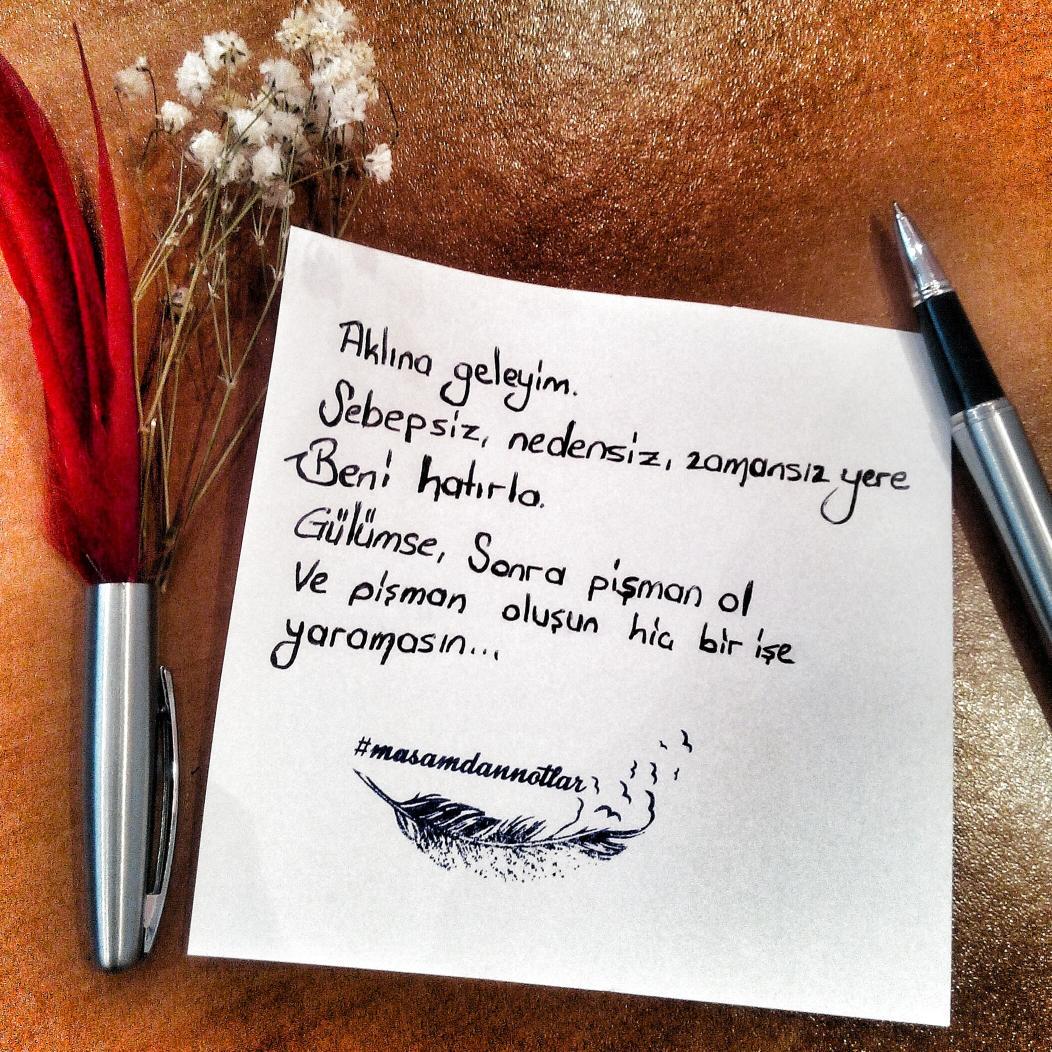 Aklına geleyim.
Sebepsiz, nedensiz, zamansız yere
Beni hatırla.
Gülümse, Sonra pişman ol
Ve pişman oluşun hiç bir işe
yaramasın...
#masamdannotlar